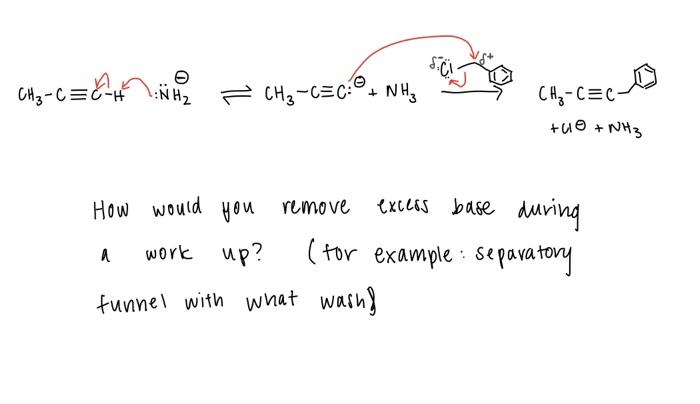 CH₃-C≡C-H :N̈H₂ ⊖ ⇌ CH₃-C≡C:⊖ + NH₃ δ⁻ :C̈l δ⁺ → CH₃-C≡C
+ Cl⊖ + NH₃
How would you remove excess base during
a work up? (for example: separatory
funnel with what wash)